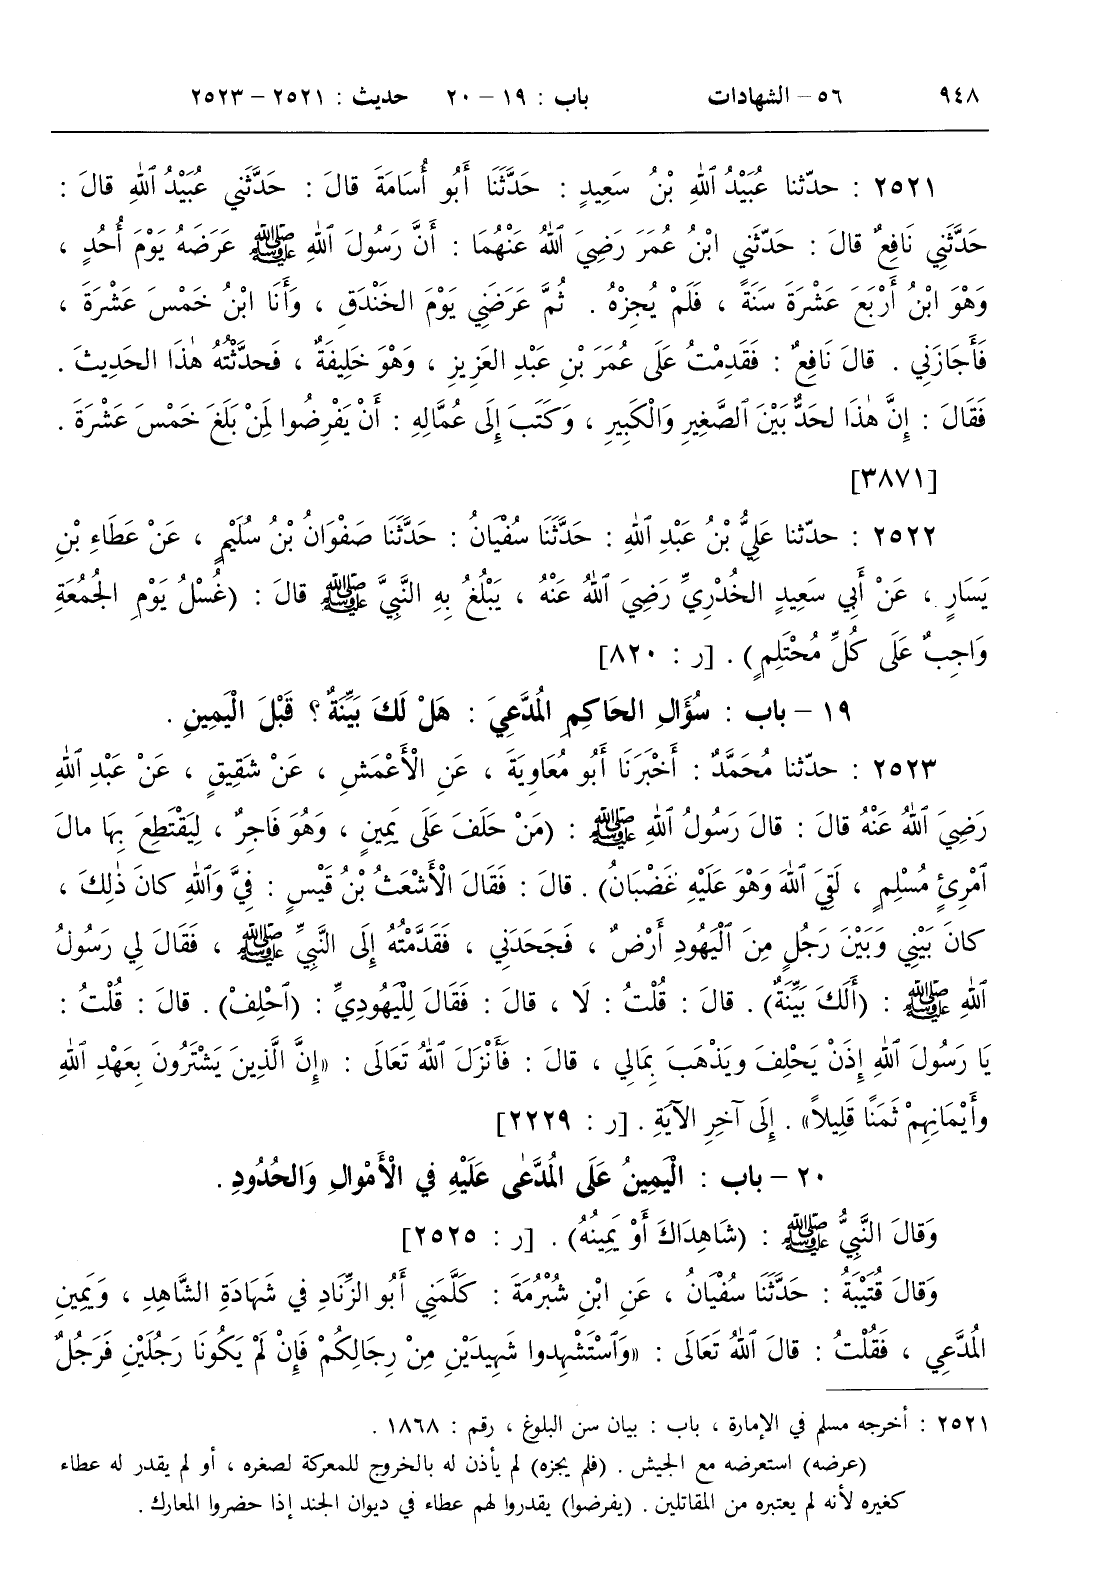 ٩٤٨ ٥٦ – الشهادات باب : ١٩ – ٢٠ حديث : ٢٥٢١ – ٢٥٢٣
٢٥٢١ : حدّثنا عُبَيْدُ ٱللهِ بْنُ سَعِيدٍ : حَدَّثَنَا أَبُو أُسَامَةَ قالَ : حَدَّثَنِي عُبَيْدُ ٱللهِ قالَ :
حَدَّثَنِي نَافِعٌ قالَ : حَدَّثَنِي ابْنُ عُمَرَ رَضِيَ ٱللهُ عَنْهُمَا : أَنَّ رَسُولَ ٱللهِ ﷺ عَرَضَهُ يَوْمَ أُحُدٍ ،
وَهْوَ ابْنُ أَرْبَعَ عَشْرَةَ سَنَةً ، فَلَمْ يُجِزْهُ . ثُمَّ عَرَضَنِي يَوْمَ الخَنْدَقِ ، وَأَنَا ابْنُ خَمْسَ عَشْرَةَ ،
فَأَجَازَنِي . قالَ نَافِعٌ : فَقَدِمْتُ عَلَى عُمَرَ بْنِ عَبْدِ العَزِيزِ ، وَهْوَ خَلِيفَةٌ ، فَحَدَّثْتُهُ هٰذَا الحَدِيثَ .
فَقَالَ : إِنَّ هٰذَا لَحَدٌّ بَيْنَ ٱلصَّغِيرِ وَالْكَبِيرِ ، وَكَتَبَ إِلَى عُمَّالِهِ : أَنْ يَفْرِضُوا لِمَنْ بَلَغَ خَمْسَ عَشْرَةَ .
[٣٨٧١]
٢٥٢٢ : حدّثنا عَلِيُّ بْنُ عَبْدِ ٱللهِ : حَدَّثَنَا سُفْيَانُ : حَدَّثَنَا صَفْوَانُ بْنُ سُلَيْمٍ ، عَنْ عَطَاءِ بْنِ
يَسَارٍ ، عَنْ أَبِي سَعِيدٍ الخُدْرِيِّ رَضِيَ ٱللهُ عَنْهُ ، يَبْلُغُ بِهِ النَّبِيَّ ﷺ قالَ : (غُسْلُ يَوْمِ الجُمُعَةِ
وَاجِبٌ عَلَى كُلِّ مُحْتَلِمٍ) . [ر : ٨٢٠]
١٩ – باب : سُؤَالِ الحَاكِمِ المُدَّعِيَ : هَلْ لَكَ بَيِّنَةٌ ؟ قَبْلَ الْيَمِينِ .
٢٥٢٣ : حدّثنا مُحَمَّدٌ : أَخْبَرَنَا أَبُو مُعَاوِيَةَ ، عَنِ الْأَعْمَشِ ، عَنْ شَقِيقٍ ، عَنْ عَبْدِ ٱللهِ
رَضِيَ ٱللهُ عَنْهُ قالَ : قالَ رَسُولُ ٱللهِ ﷺ : (مَنْ حَلَفَ عَلَى يَمِينٍ ، وَهُوَ فَاجِرٌ ، لِيَقْتَطِعَ بِهَا مالَ
ٱمْرِئٍ مُسْلِمٍ ، لَقِيَ ٱللهَ وَهْوَ عَلَيْهِ غَضْبَانُ) . قالَ : فَقَالَ الْأَشْعَثُ بْنُ قَيْسٍ : فِيَّ وَٱللهِ كانَ ذٰلِكَ ،
كانَ بَيْنِي وَبَيْنَ رَجُلٍ مِنَ ٱلْيَهُودِ أَرْضٌ ، فَجَحَدَنِي ، فَقَدَّمْتُهُ إِلَى النَّبِيِّ ﷺ ، فَقَالَ لِي رَسُولُ
ٱللهِ ﷺ : (أَلَكَ بَيِّنَةٌ) . قالَ : قُلْتُ : لَا ، قالَ : فَقَالَ لِلْيَهُودِيِّ : (ٱحْلِفْ) . قالَ : قُلْتُ :
يَا رَسُولَ ٱللهِ إِذَنْ يَحْلِفَ وَيَذْهَبَ بِمَالِي ، قالَ : فَأَنْزَلَ ٱللهُ تَعَالَى : «إِنَّ الَّذِينَ يَشْتَرُونَ بِعَهْدِ ٱللهِ
وأَيْمَانِهِمْ ثَمَنًا قَلِيلاً» . إِلَى آخِرِ الآيَةِ . [ر : ٢٢٢٩]
٢٠ – باب : الْيَمِينُ عَلَى المُدَّعَى عَلَيْهِ فِي الْأَمْوالِ وَالحُدُودِ .
وَقالَ النَّبِيُّ ﷺ : (شَاهِدَاكَ أَوْ يَمِينُهُ) . [ر : ٢٥٢٥]
وَقالَ قُتَيْبَةُ : حَدَّثَنَا سُفْيَانُ ، عَنِ ابْنِ شُبْرُمَةَ : كَلَّمَنِي أَبُو الزِّنَادِ فِي شَهَادَةِ الشَّاهِدِ ، وَيَمِينِ
المُدَّعِي ، فَقُلْتُ : قالَ ٱللهُ تَعَالَى : «وَٱسْتَشْهِدوا شَهِيدَيْنِ مِنْ رِجَالِكُمْ فَإِنْ لَمْ يَكُونَا رَجُلَيْنِ فَرَجُلٌ
٢٥٢١ : أخرجه مسلم في الإمارة ، باب : بيان سن البلوغ ، رقم : ١٨٦٨ .
(عرضه) استعرضه مع الجيش . (فلم يجزه) لم يأذن له بالخروج للمعركة لصغره ، أو لم يقدر له عطاء
كغيره لأنه لم يعتبره من المقاتلين . (يفرضوا) يقدروا لهم عطاء في ديوان الجند إذا حضروا المعارك .